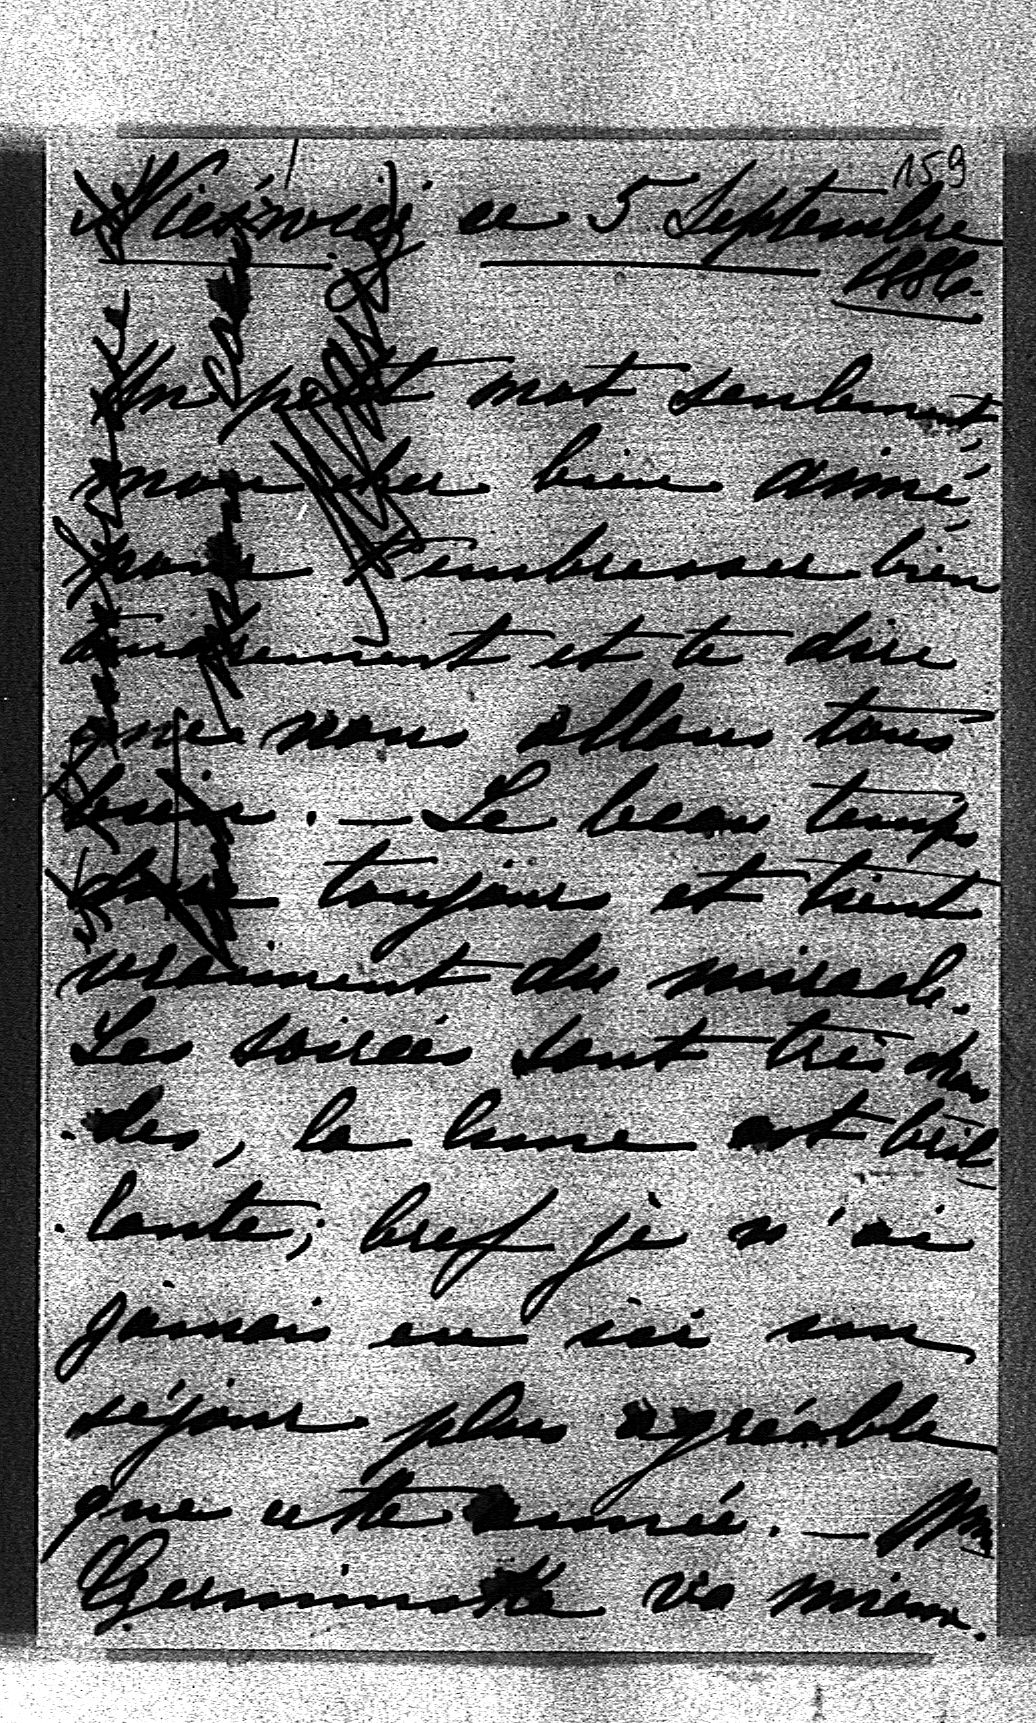 159
Nieświcz ce 5 Septembre
1886.
Un petit mot seulement
mon cher bien aimé
pour t'embrasser bien
tendrement et te dire
que nous allons tous
bien. — Le beau temps
dure toujours et tient
vraiment du miracle.
Les soirées sont très chau
des, la lune est bril
lante; bref je n'ai
jamais eu ici un
séjour plus agréable
que cette année. — Mme
va mieux.